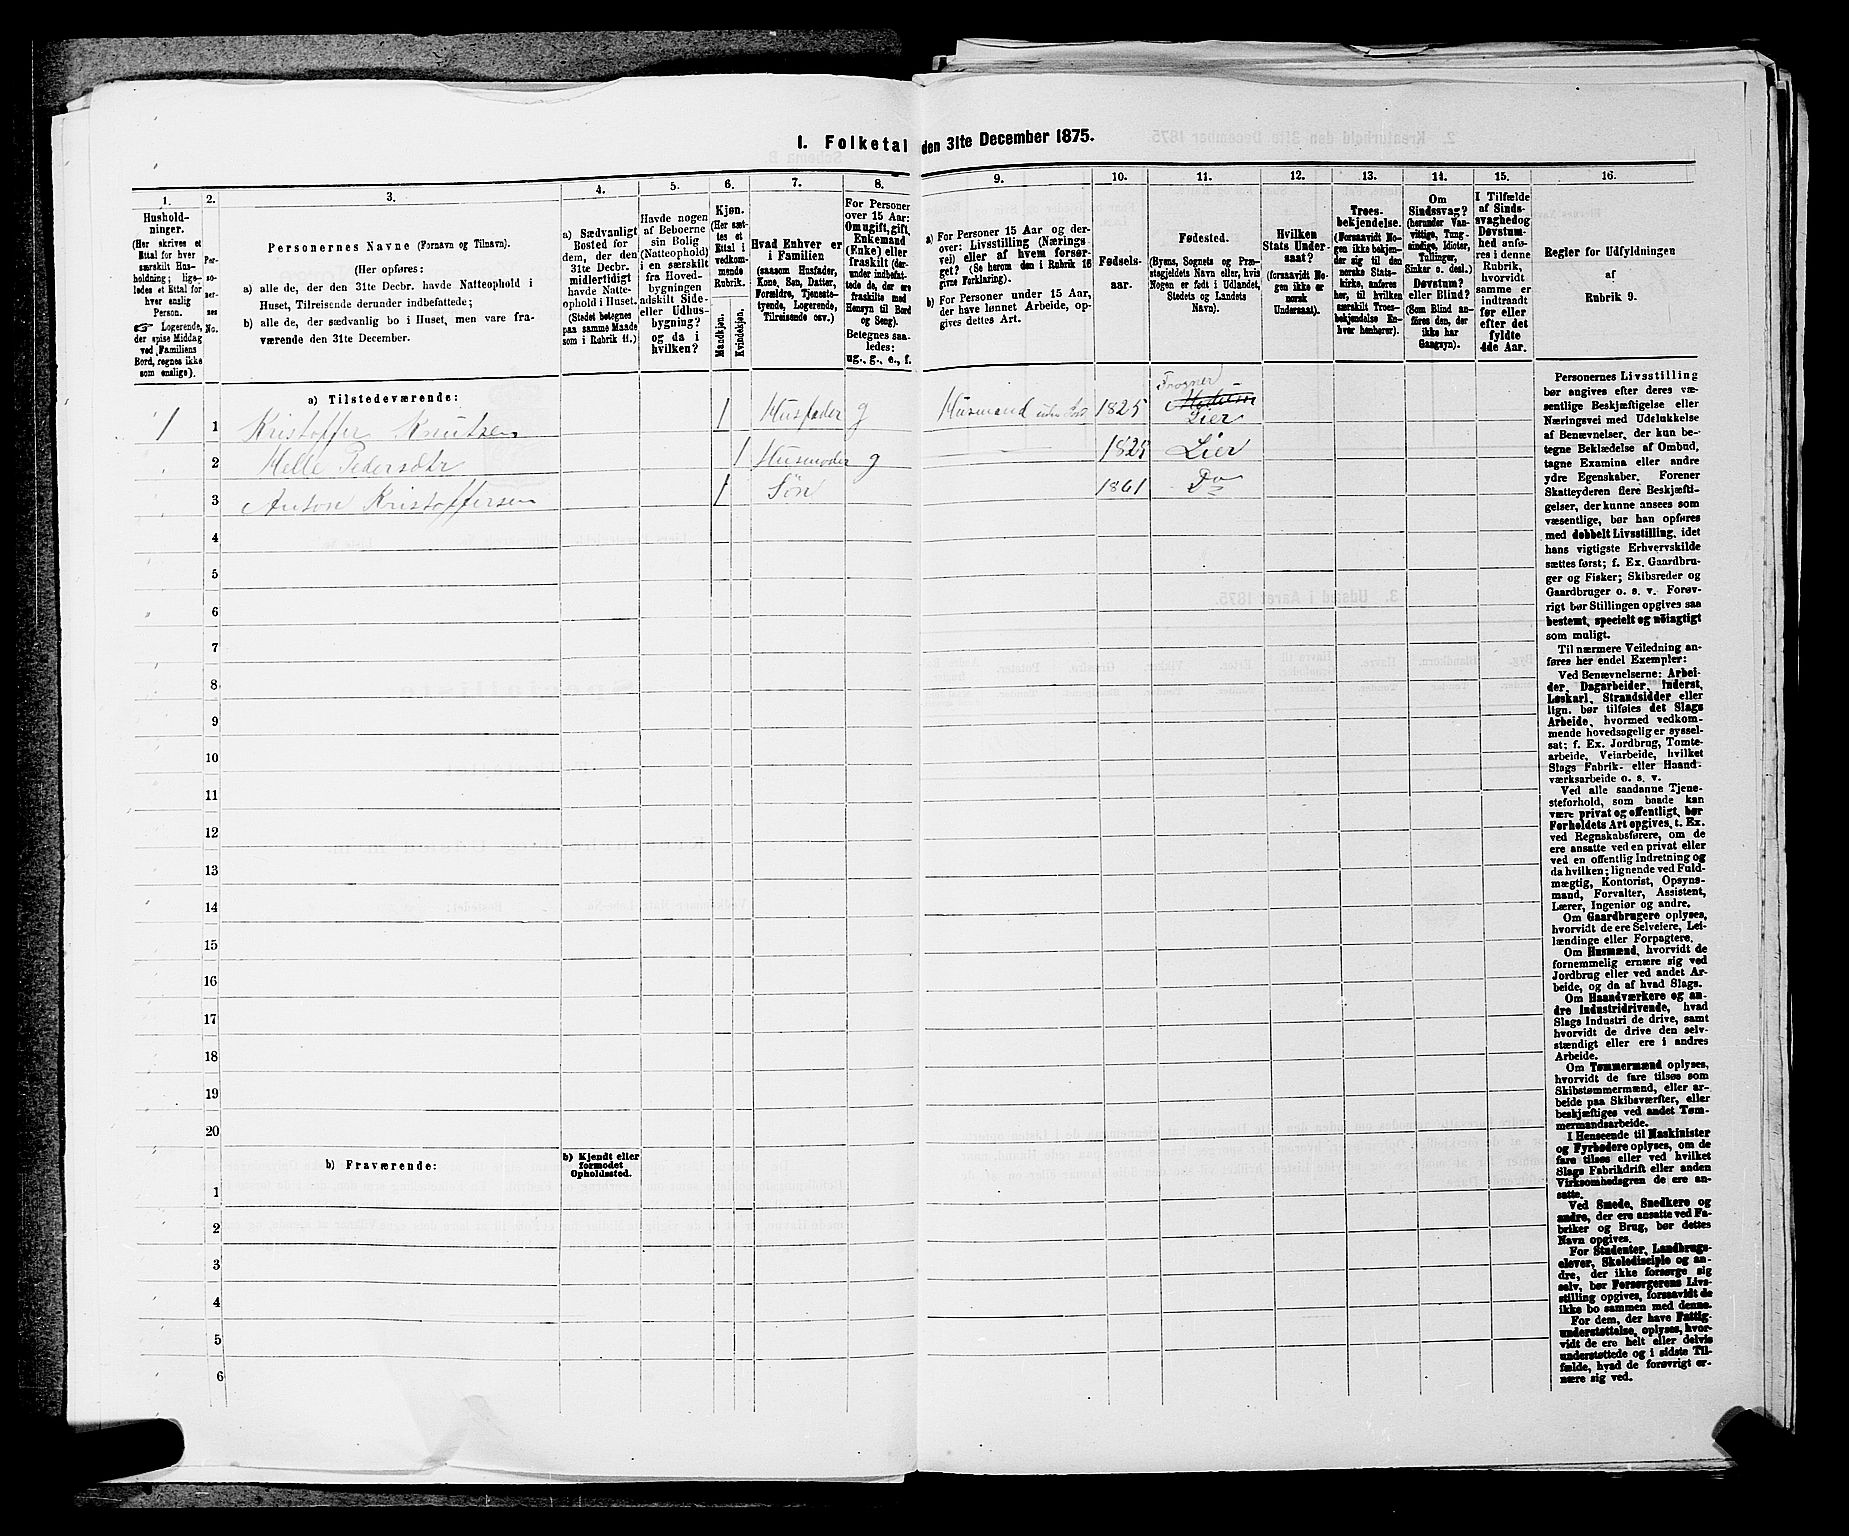 I. Folketal den 31te December 1875.
1.
Hushold-
ninger.
(Her skrives et
Ettal for hver
særskilt Hus-
holdning; lige-
ledes et Ettal for
hver enslig
Person.
☞ Logerende,
der spise Middag
ved Familiens
Bord, regnes ikke
som enslige).
2.
Per-
so-
ner-
nes
No.
3.
Personernes Navne (Fornavn og Tilnavn).
(Her opføres:
a) alle de, der den 31te Decbr. havde Natteophold i
Huset, Tilreisende derunder indbefattede;
b) alle de, der sædvanlig bo i Huset, men vare fra-
værende den 31te December.
4.
a) Sædvanligt
Bosted for
dem, der den
31te Decbr.
midlertidigt
havde Natte-
ophold i Huset.
(Stedet betegnes
paa samme Maade
som i Rubrik 11.)
5.
Havde nogen
af Beboerne
sin Bolig
(Natteophold)
i en særskilt
fra Hoved-
bygningen
adskilt Side-
eller Udhus-
bygning?
og da i
hvilken?
6.
Kjøn.
(Her sæt-
tes et
Ettal i
vedkom-
mende
Rubrik.
Mandkjøn.
Kvindekjøn.
7.
Hvad Enhver er
i Familien
(saasom Husfader,
Kone, Søn, Datter,
Forældre, Tjeneste-
tyende, Logerende,
Tilreisende osv.)
8.
For Personer
over 15 Aar:
Om ugift, gift,
Enkemand
(Enke) eller
fraskilt (der-
under indbefat-
tede de, der ere
fraskilte med
Hensyn til Bord
og Seng).
Betegnes saa-
ledes:
ug., g., e., f.
9.
a) For Personer 15 Aar og der-
over: Livsstilling (Nærings
vei) eller af hvem forsør-
get? (Se herom den i Rubrik 16
givne Forklaring).
b) For Personer under 15 Aar,
der have lønnet Arbeide, op-
gives dettes Art.
10.
Fødsels-
aar.
11.
Fødested.
(Byens, Sognets og Præ-
stegjeldets Navn eller, hvis
Nogen er født i Udlandet,
Stedets og Landets
Navn).
12.
Hvilken
Stats Under-
saat?
(forsaavidt No-
gen ikke er
norsk
Undersaat).
13.
Troes-
bekjendelse.
(Forsaavidt No-
gen ikke bekjen-
der sig til den
norske Stats-
kirke, anføres
her, til hvilken
særskilt Troes-
bekjendelse En-
hver henhører).
14.
Om
Sindssvag?
(herunder Van-
vittige, Tung-
sindige, Idioter,
Tullinger,
Sinker o. desl.)
Døvstum?
eller Blind?
(Som Blind an-
føres den, der
ikke har
Gangsyn).
15.
I Tilfælde
af Sinds-
svaghed og
Døvstum-
hed anfø-
res i denne
Rubrik,
hvorvidt
samme er
indtraadt
før eller
efter det
fyldte
4de Aar.
16.
Regler for Udfyldningen
af
Rubrik 9.
a) Tilstedeværende:
1 1 Kristoffer Knutsen 1 Husfader g Husmand uden Jord 1825 Frogner Modum Lier
2 Helle Pedersdtr 1 Husmoder g 1825 Lier
3 Anton Kristoffersen 1 Søn 1861 Do
4
5
6
7
8
9
10
11
12
13
14
15
16
17
18
19
20
b) Fraværende:
b) Kjendt eller
formodet
Opholdssted.
1
2
3
4
5
6
Personernes Livsstilling
bør angives efter deres væ-
sentlige Beskjæftigelse eller
Næringsvei med Udelukkelse
af Benævnelser, der kun be-
tegne Beklædelse af Ombud,
tagne Examina eller andre
ydre Egenskaber. Forener
Skatteyderen flere Beskjæfti-
gelser, der kunne ansees som
væsentlige, bør han opføres
med dobbelt Livsstilling, idet
hans vigtigste Erhvervskilde
sættes først; f. Ex. Gaardbru-
ger og Fisker; Skibsreder og
Gaardbruger o. s. v. Forøv-
rigt bør Stillingen opgives saa
bestemt, specielt og nøiagtigt
som muligt.
Til nærmere Veiledning an-
føres her endel Exempler:
Ved Benævnelserne: Arbei-
der, Dagarbeider, Inderst,
Løskarl, Strandsidder eller
lign. bør tilføies det Slags
Arbeide, hvormed vedkom-
mende hovedsagelig er syssel-
sat; f. Ex. Jordbrug, Tomte-
arbeide, Veiarbeide, hvilket
Slags Fabrik- eller Haand-
værksarbeide o. s. v.
Ved alle saadanne Tjene-
steforhold, som baade kan
være privat og offentligt, bør
Forholdets Art opgives, t. Ex.
ved Regnskabsførere, om de
ere ansatte ved en privat eller
ved en offentlig Indretning og
da hvilken; lignende ved Fuld-
mægtig, Kontorist, Opsyns-
mand, Forvalter, Assistent,
Lærer, Ingeniør og andre.
Om Gaardbrugere oplyses,
hvorvidt de ere Selveiere, Lei-
lændinge eller Forpagtere.
Om Husmænd, hvorvidt de
fornemmelig ernære sig ved
Jordbrug eller ved andet Ar-
beide, og da af hvad Slags.
Om Haandværkere og an-
dre Industridrivende, hvad
Slags Industri de drive, samt
hvorvidt de drive den selv-
stændigt eller ere i andres
Arbeide.
Om Tømmermænd oplyses,
hvorvidt de fare tilsøs som
Skibstømmermænd, eller ar-
beide paa Skibsværfter, eller
beskjæftiges ved andet Tøm-
mermandsarbeide.
I Henseende til Maskinister
og Fyrbødere oplyses, om de
fare tilsøs eller ved hvilket
Slags Fabrikdrift eller anden
Virksomhedsgren de ere an-
satte.
Ved Smede, Snedkere og
andre, der ere ansatte ved Fa-
briker og Brug, bør dettes
Navn opgives.
For Studenter, Landbrugs-
elever, Skoledisciple og an-
dre, der ikke forsørge sig
selv, bør Forsørgerens Livs-
stilling opgives, forsaavidt de
ikke bo sammen med denne.
For dem, der have Fattig-
understøttelse, oplyses, hvor-
vidt de ere helt eller delvis
understøttede og i sidste Til-
fælde, hvad de forøvrigt er-
nære sig ved.